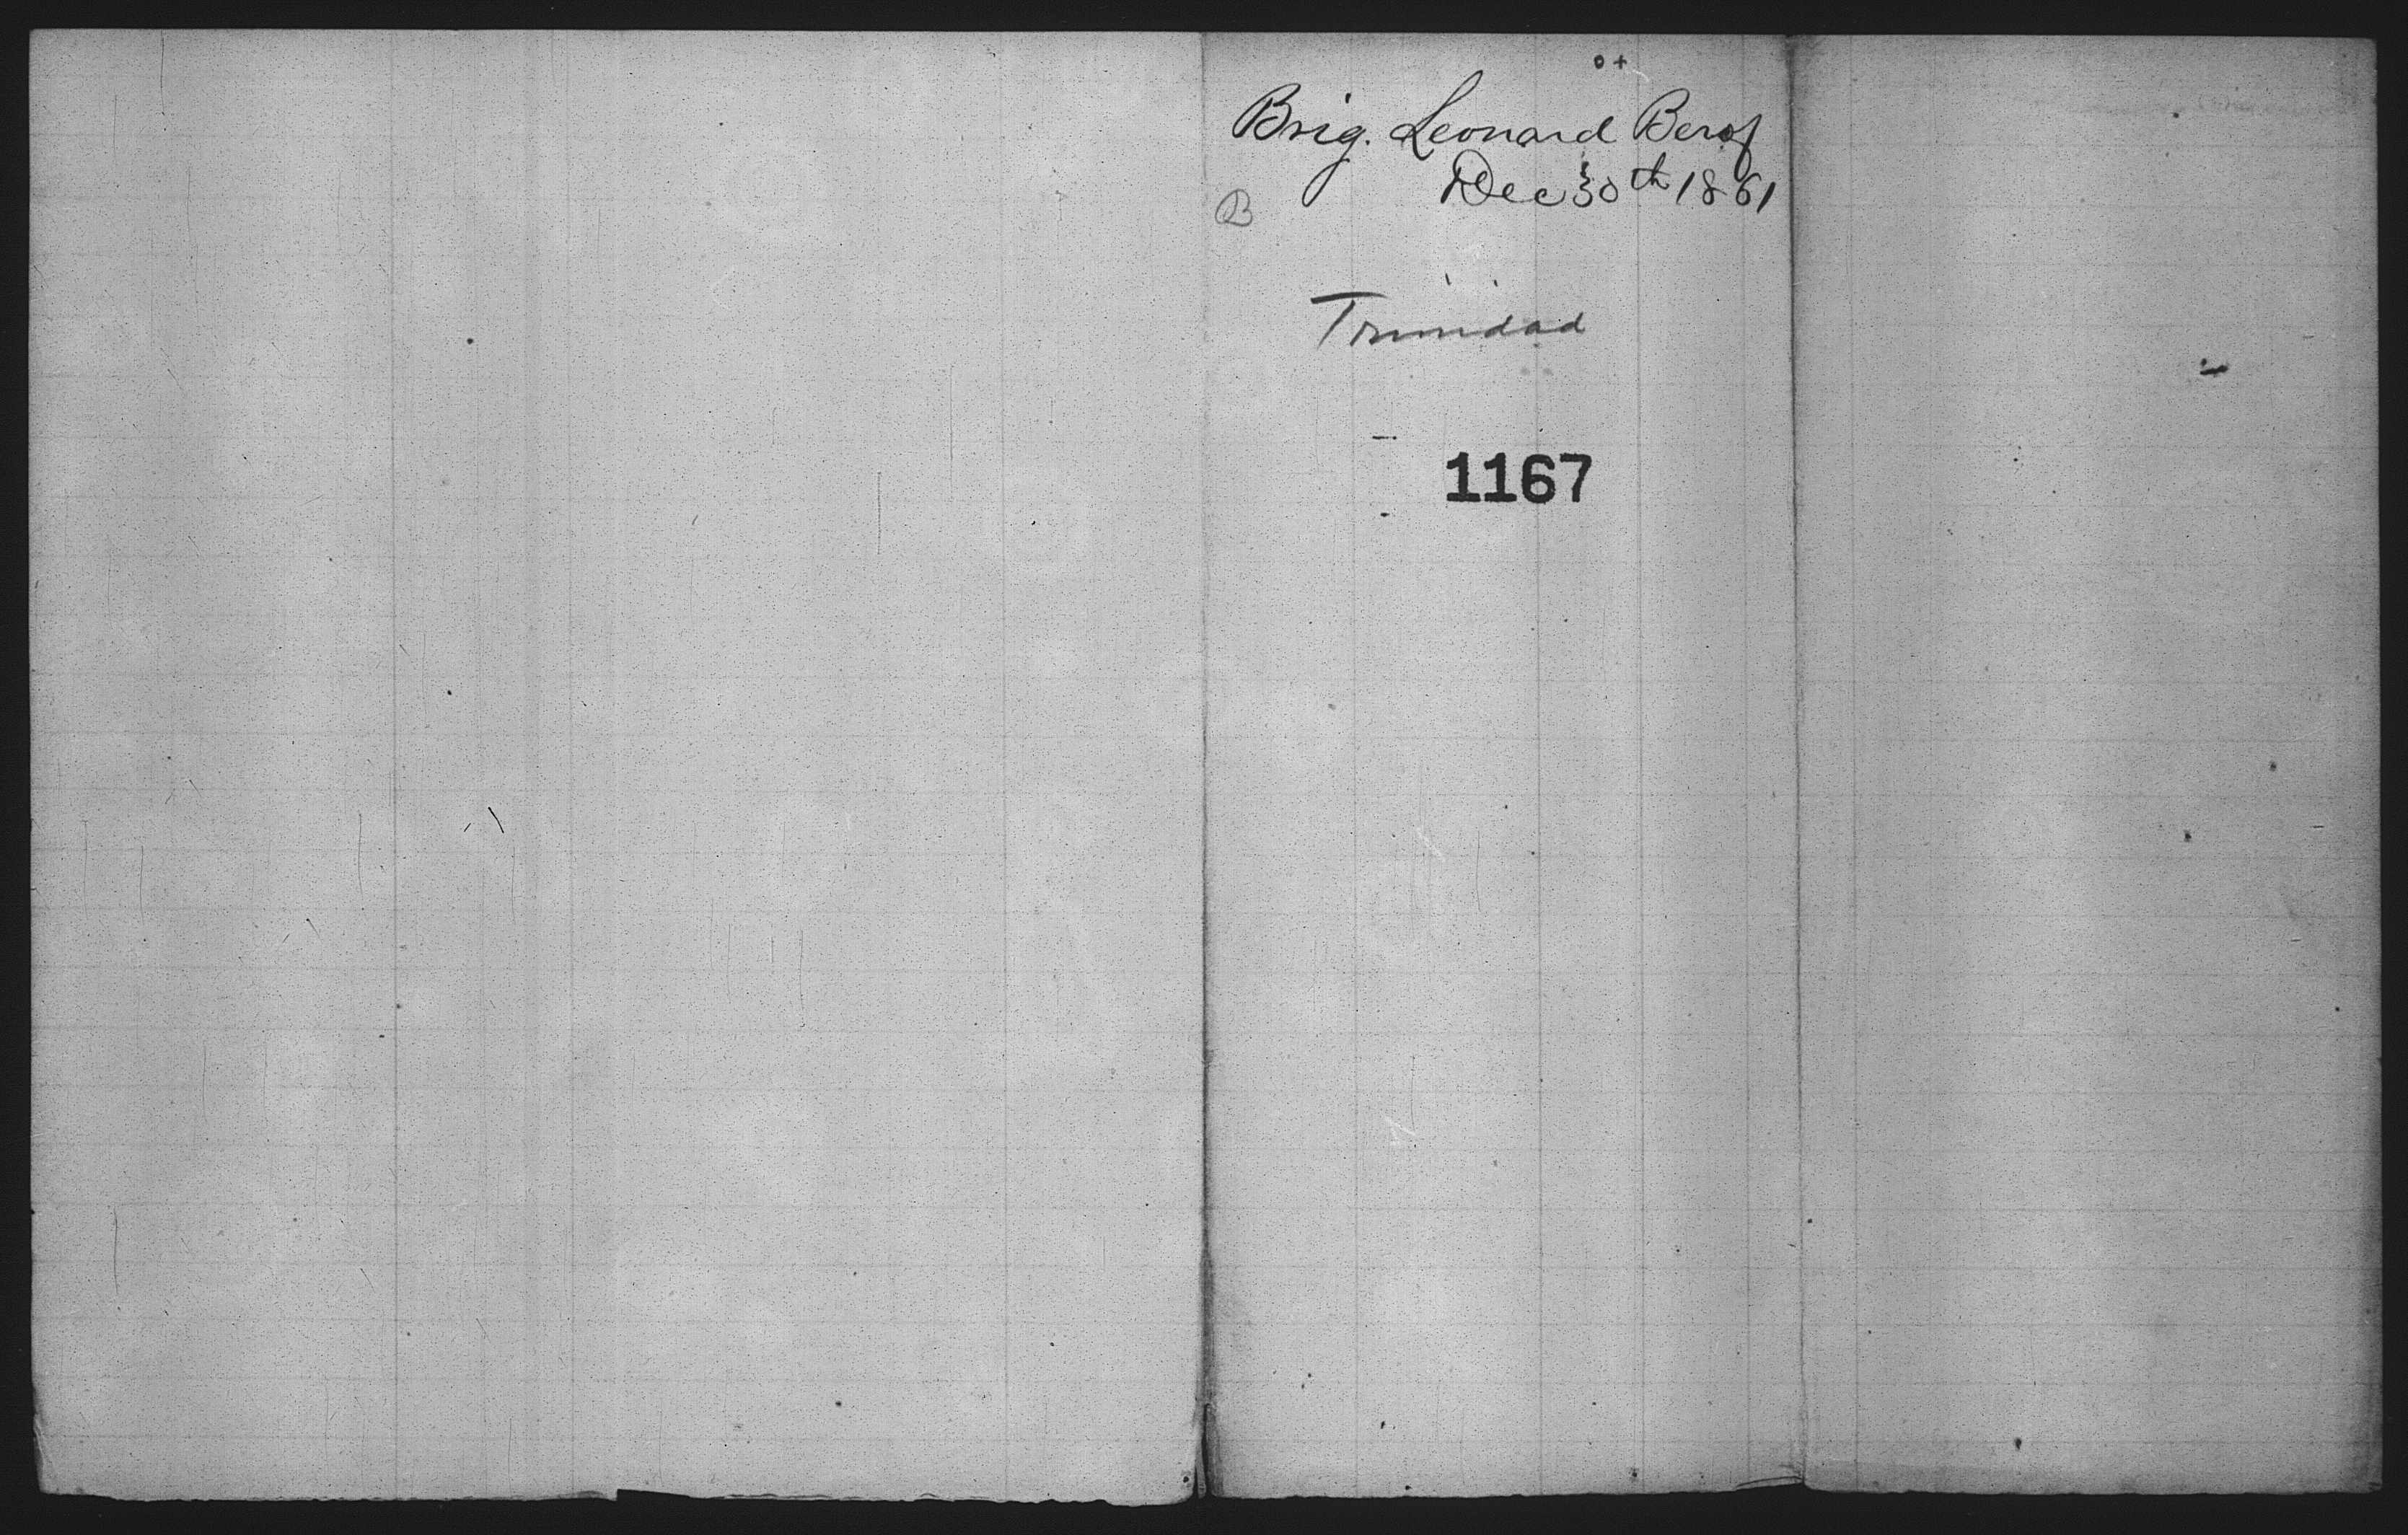 Brig. Leonard Berry
Dec 30th 1861
B
Trinidad
1167